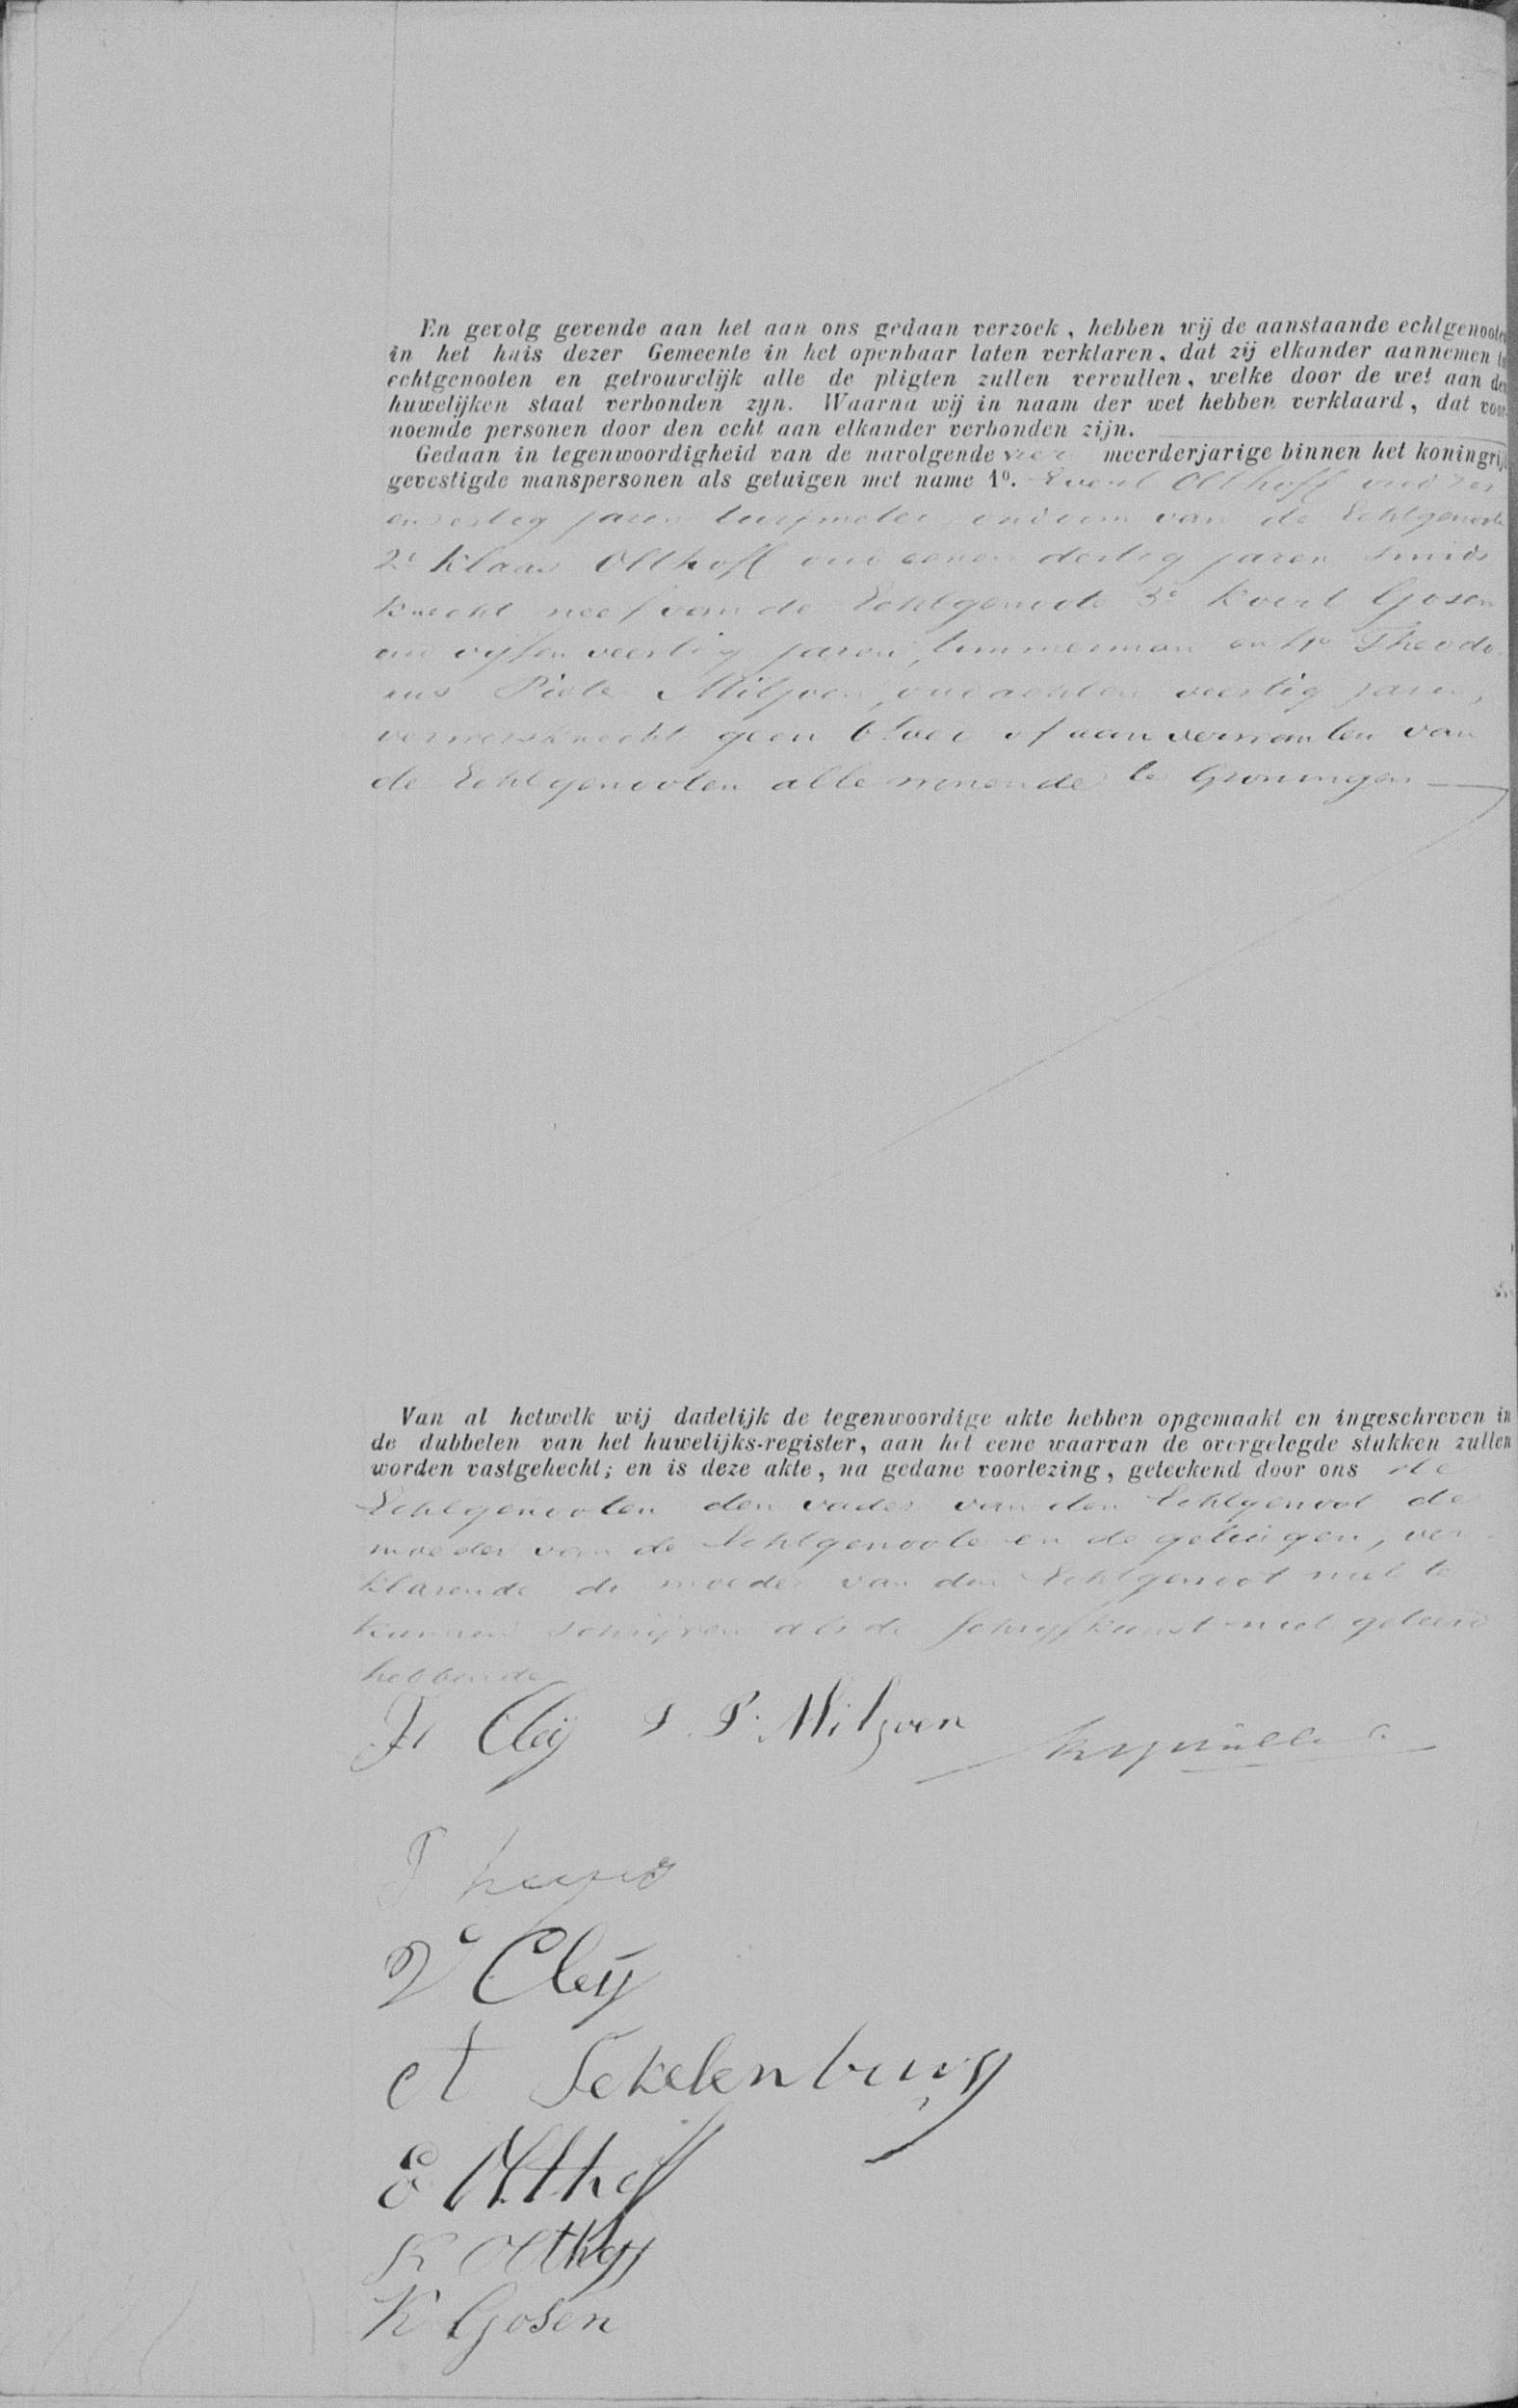 En gevolg gevende aan het aan ons gedaan verzoek, hebben wij de aanstaande echtgenooten
in het huis dezer Gemeente in het openbaar laten verklaren, dat zij elkander aannemen tot
echtgenooten en getrouwelijk alle de pligten zullen vervullen, welke door de wet aan den
huwelijken staat verbonden zyn. Waarna wij in naam der wet hebben verklaard, dat voor-
noemde personen door den echt aan elkander verbonden zijn.
Gedaan in tegenwoordigheid van de navolgende vier meerderjarige binnen het koningrijk
gevestigde manspersonen als getuigen met name 1º. Evert Olthoff oud zes
en zestig jaren turfmeter, oudoom van de Echtgenoote
2º Klaas Olthoff oud eenen dertig jaren smids
knecht neef van de Echtgenoote 3º Koert Gosen
oud vijfen veertig jaren, timmerman en 4º Theodo
rus Pieter Miljoen, oud achten veertig jaren,
verversknecht geen bloed of aanverwanten van
de Echtgenooten alle wonende te Groningen
Van al hetwelk wij dadelijk de tegenwoordige akte hebben opgemaakt en ingeschreven in
de dubbelen van het huwelijks-register, aan het eene waarvan de overgelegde stukken zullen
worden vastgehecht; en is deze akte, na gedane voorlezing, geteekend door ons de
Echtgenooten den vader van den Echtgenoot de
moeder van de Echtgenoote en de getuigen, ver-
klarende de moeder van den Echtgenoot niet te
kunnen schrijven als de schrijfkunst niet geleerd
hebbende
Cleij P. Miljoen
Cleij
Sekelenburg
E Olthoff
K Olthoff
K Gosen